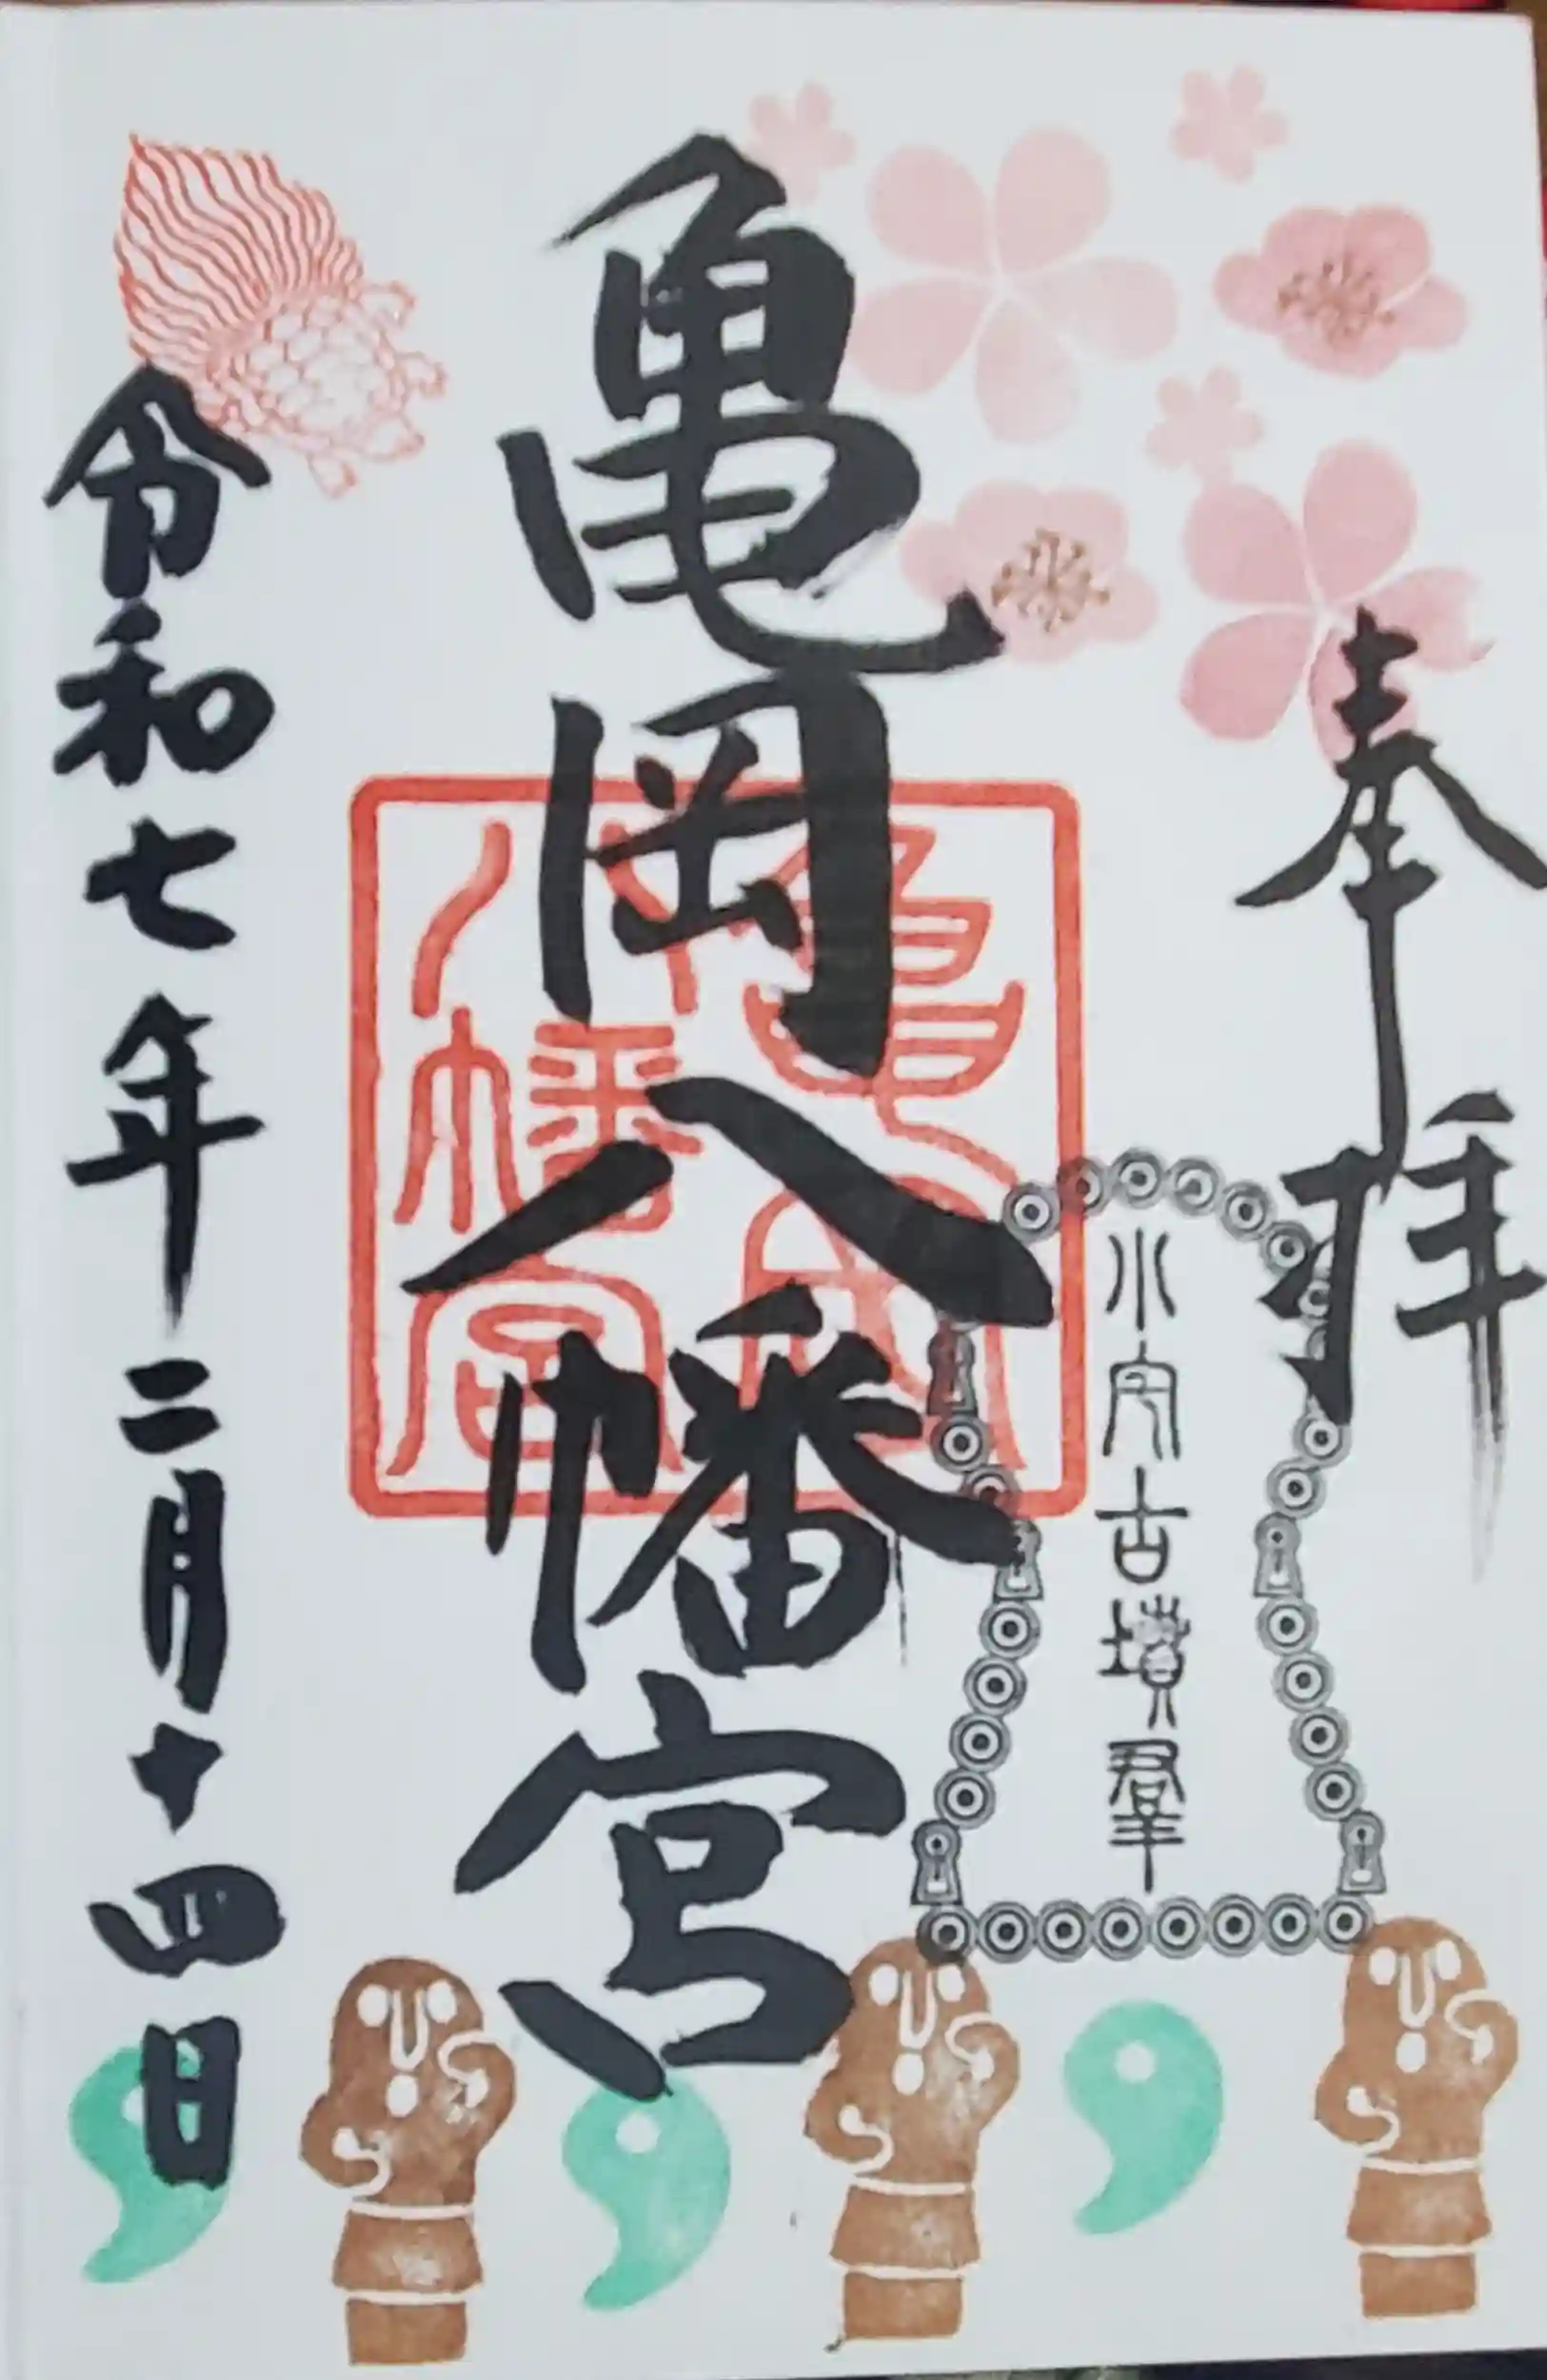 奉拝
小宅古墳群
亀岡八幡宮
亀岡八幡宮
令和七年二月十四日